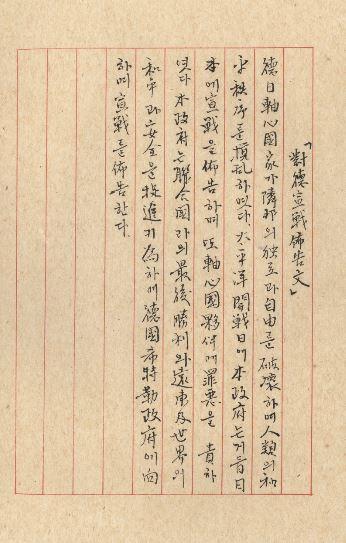 「對德宣戰佈告文」
德日軸心國家가隣邦의独立과自由를破壞하며人類의和
平秩序를擾乱하엿다.太平洋開戰日에本政府는거듭日
本에宣戰을佈告하며또軸心國夥伴에罪悪을責하
엿다本政府는聯合国과의最後勝利와遠東及世界의
和平과安全을促進키為하야德國希特勒政府에向
하며宣戰를佈告한다.